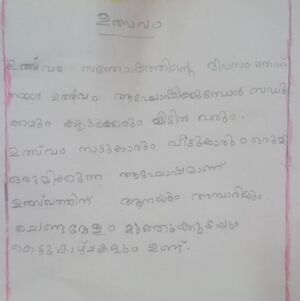 ഉത്സവം
ഉത്സ്വം സന്തോഷത്തിന്റെ ദിവസം
നമ്മൾ ഉത്സവം ആഘോഷിക്കുമ്പോൾ ബന്ധു
ക്കളും കൂട്ടുക്കാരും വീട്ടിൽ വരും.
ഉത്സ്വം നാട്ടുകാരും വീട്ടുകാരും
ഒരുമിക്കുന്ന ആഘോഷമാണ്
ഉത്സ്വത്തിന് ആനയും അമ്പാരിയും
ചെണ്ടമേളം മുത്തുക്കുടയും
കെട്ടുകാഴ്ചകളും ഉണ്ട്.